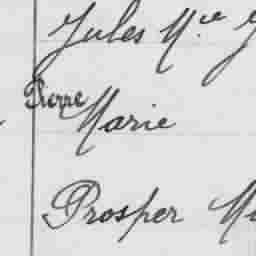 Jules M.ce
Pierre
Marie
Prosper